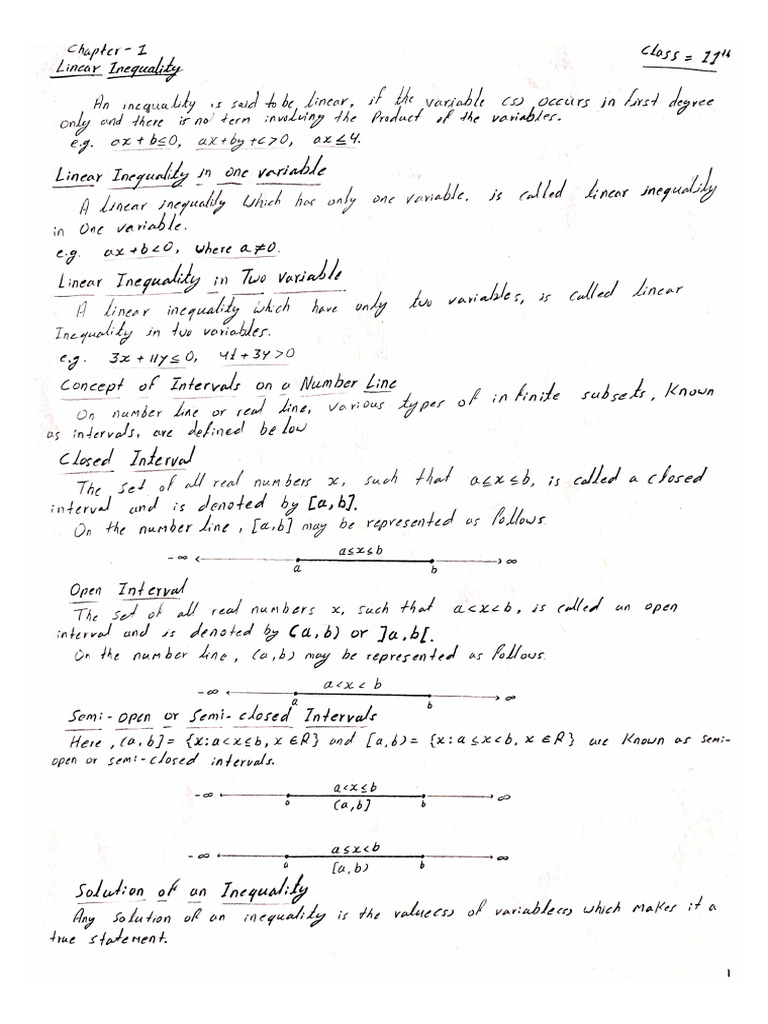 Chapter - 1
Class = 11th
Linear Inequality
An inequality is said to be, linear, if the variable (s) occurs in first degree
only and there is no term involving the Product of the variables.
e.g. ax + b ≤ 0, ax + by + c > 0, ax ≤ 4.
Linear Inequality in one variable
A linear inequality which has only one variable, is called linear inequality
in One variable.
e.g. ax + b < 0, where a ≠ 0.
Linear Inequality in Two variable
A linear inequality which have only two variables, is called linear
Inequality in two variables.
e.g. 3x + 11y ≤ 0, 4t + 3y > 0
Concept of Intervals on a Number Line
On number line or real line, various types of infinite subsets, Known
as intervals, are defined below
Closed Interval
The set of all real numbers x, such that a ≤ x ≤ b, is called a closed
interval and is denoted by [a, b].
On the number line, [a, b] may be represented as follows
a ≤ x ≤ b
-∞ ∞
a b
Open Interval
The set of all real numbers x, such that a < x < b, is called an open
interval and is denoted by (a, b) or ]a, b[.
On the number line, (a, b) may be represented as follows.
a < x < b
-∞ ∞
a b
Semi-open or Semi-closed Intervals
Here, (a, b] = {x : a < x ≤ b, x ∈ R} and [a, b) = {x : a ≤ x < b, x ∈ R} are Known as semi-
open or semi-closed intervals.
a < x ≤ b
-∞ ∞
a (a, b] b
a ≤ x < b
-∞ ∞
a [a, b) b
Solution of an Inequality
Any solution of an inequality is the value(s) of variable(s) which makes it a
true statement.
1